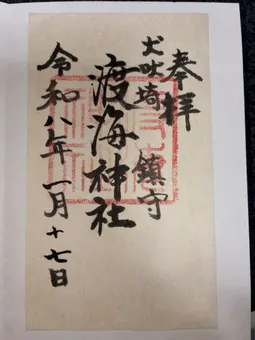 奉拝
犬吠埼 鎮守
渡海神社
令和八年 一月 十七日